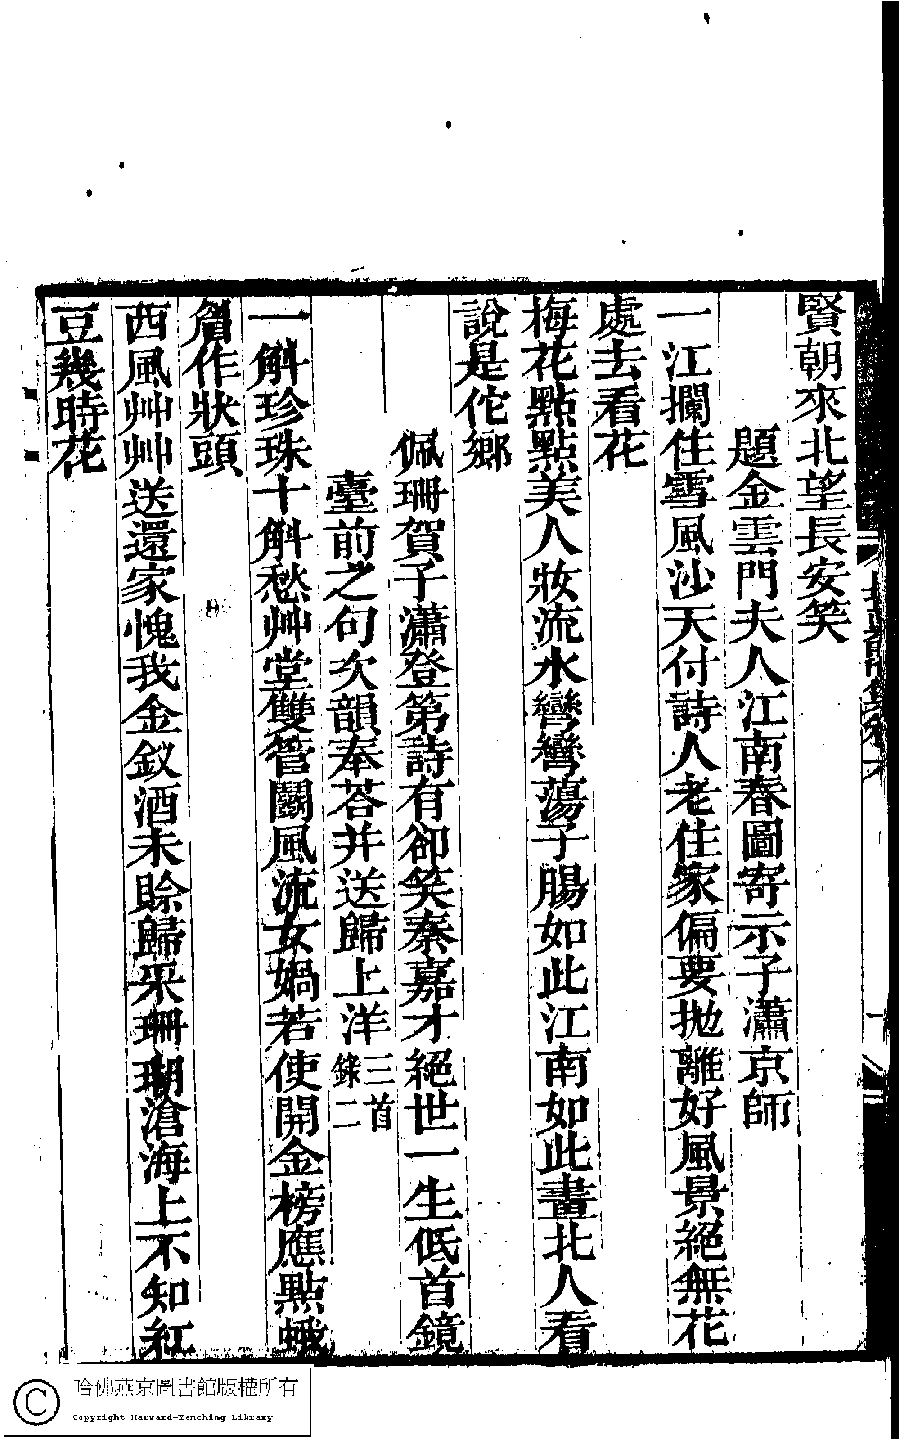 賢朝來北望長安笑
題金雲門夫人江南春圖寄示子瀟京師
一江攔住雪風沙天付詩人老住家偏要拋離好風景絕無花
處去看花
梅花點點美人妝流水彎彎蕩子腸如此江南如此畫北人看
說是佗鄉
佩珊賀子瀟登第詩有卻笑秦嘉才絕世一生低首鏡
臺前之句次韻奉荅并送歸上洋三首錄二
一斛珍珠十斛愁艸堂雙管鬭風流女媧若使開金榜應點蛾
眉作狀頭
西風艸艸送還家愧我金釵酒未賒歸采珊瑚滄海上不知紅
豆幾時花
哈佛燕京圖書館版權所有
Copyright Harvard-Yenching Library